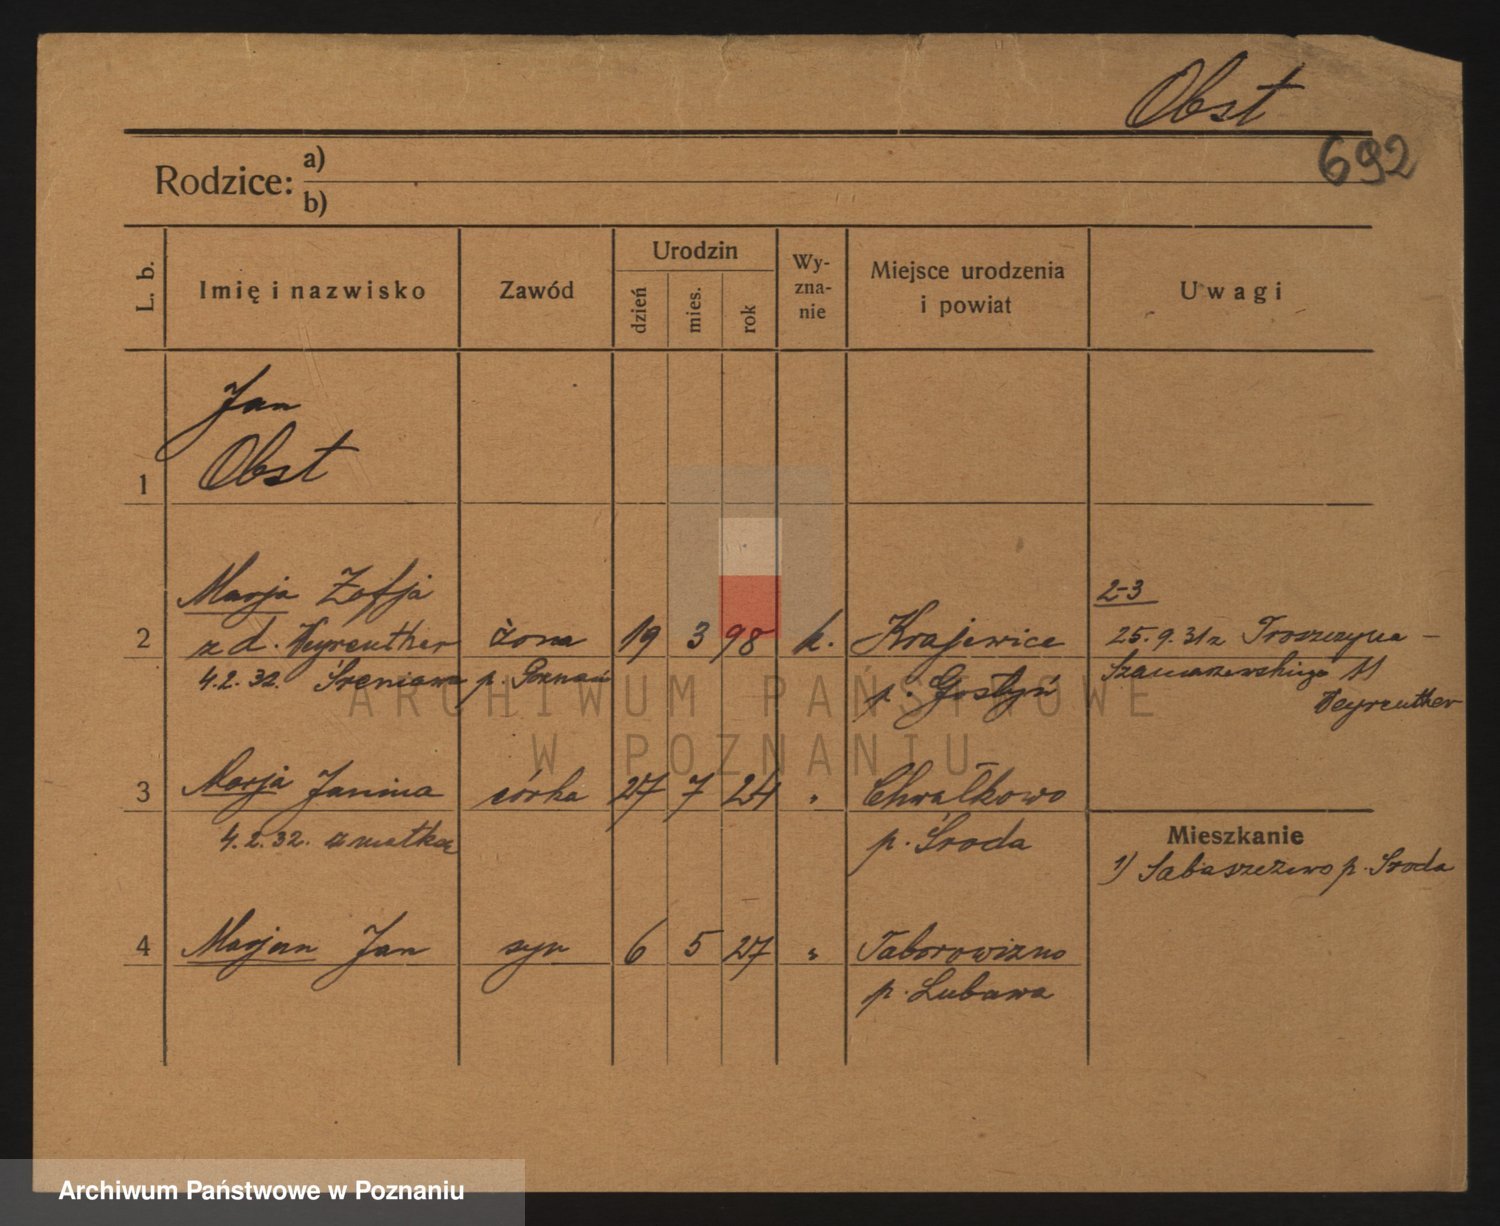 Obst
692
Rodzice: a)
b)
L. b.
Imię i nazwisko
Zawód
Urodzin
dzień
mies.
rok
Wy-
zna-
nie
Miejsce urodzenia
i powiat
Uwagi
1
Jan
Obst
2
Marja Zofja
z d. Weyreuther żona 19 3 98 k. Krajewice
4.2.32. Śreniawa p. Poznań
p. Gostyń
2-3
25.9.31 z
Szamarzewskiego 11
Weyreuther
3 Marja Janina córka 27 7 24 " Chwałkowo
4.2.32. z matką p. Środa
Mieszkanie
1) Sabaszczewo p. Środa
4 Marjan Jan syn 6 5 27 " Taborowizno
p. Lubawa
ARCHIWUM PAŃSTWOWE
W POZNANIU
Archiwum Państwowe w Poznaniu